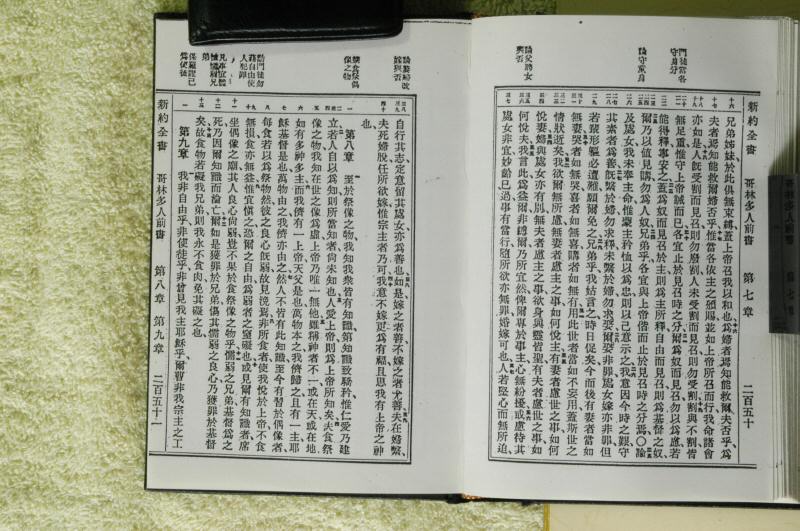 新約全書 哥林多人前書 第七章 二百五十
兄弟姊妹於此俱無束縛蓋上帝召我以和也爲婦者焉知能救爾夫否乎爲
夫者焉知能救爾婦否乎惟當各依主之頒賜並如上帝所召而行我命諸會
亦如是人旣受割而見召則勿廢割人未受割而見召則勿受割受割與不割皆
無足重惟守上帝誡而已各宜止於見召時之分爾爲奴而見召勿以爲慮若
能得釋寧安之蓋爲奴而見召於主則爲主所釋自由而見召則爲基督之奴
爾乃以值見購勿爲人奴兄弟乎各宜與上帝偕而止於見召時之分焉〇論
及處女我未奉主命惟蒙主矜恤以爲忠則以己意示之我意因今時之艱守
其素者爲善旣繫於婦勿求釋未繫於婦勿求娶娶非罪處女嫁亦非罪但
若輩形軀必遭難願爾免之兄弟乎我姑言之時日促矣今而後有妻者當如
無妻哭者如無哭喜者如無喜購者如無有用此世者當如不妄用蓋斯世之
情狀逝矣我欲爾無所慮無妻者慮主之事如何悅主有妻者慮世之事如何
悅妻婦與處女亦有別無夫者慮主之事欲身與靈皆聖有夫者慮世之事如
何悅夫我言此爲益爾非縛爾乃所宜然俾爾專於事主心無紛擾或慮待其
處女非宜妙齡已過事有當行隨所欲亦無罪婚嫁可也人若堅心而無所迫
門徒當各守身分
論守童身
論父嫁女與否
自行其志定意留其處女亦爲善也如是嫁之者尤善夫在婦繫
夫死婦脫任所欲嫁惟宗主者乃可我意不嫁更爲有福且思我有上帝之神
也
第八章 至於祭像之物我知我衆皆有知識第知識致驕矜惟仁愛乃建
立若人自以爲知則所當知者尚未知也人愛上帝則爲上帝所知矣夫食祭
像之物我知在世之像爲虛上帝乃唯一無他雖稱神者不一或在天或在地
如有多神多主而我儕有一上帝天父是也萬物本之我儕歸之且有一主耶
穌基督是也萬物由之我儕亦由之然人不皆有此知識至今有習於偶像者
每食若以爲祭物然彼之良心旣弱故見浼焉非所食者使我悅於上帝不食
無損食亦無益惟宜愼之恐爾之自由爲弱者之窒礙也或見爾有知識者席
坐偶像之廟其人良心尚弱豈不果於食祭像之物乎儒弱之兄弟基督爲之
死乃因爾知識而淪亡爾如是獲罪於兄弟傷其儒弱之良心乃獲罪於基督
矣故食物若礙我兄弟則我永不食肉免其礙之也
第九章 我非自由乎非使徒乎非曾見我主耶穌乎爾曹非我宗主之工
新約全書 哥林多人前書 第八章 第九章 二百五十一